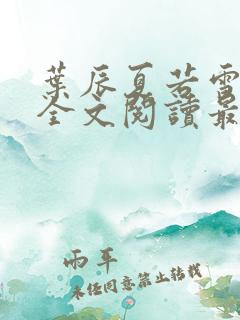 葉辰夏若雪
全文閱讀最
雨年
未經同意禁止轉載